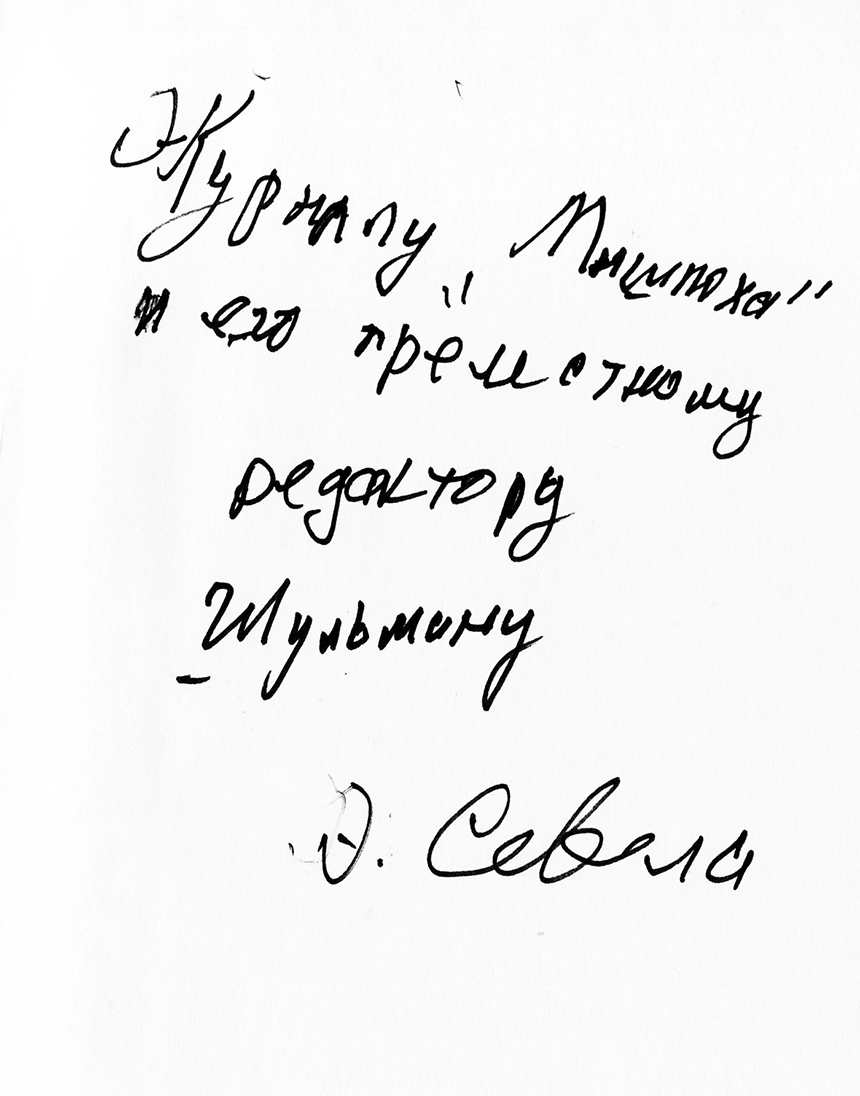 Журналу „Мишпоха"
и его прелестному
редактору
Шульману
Э. Севела